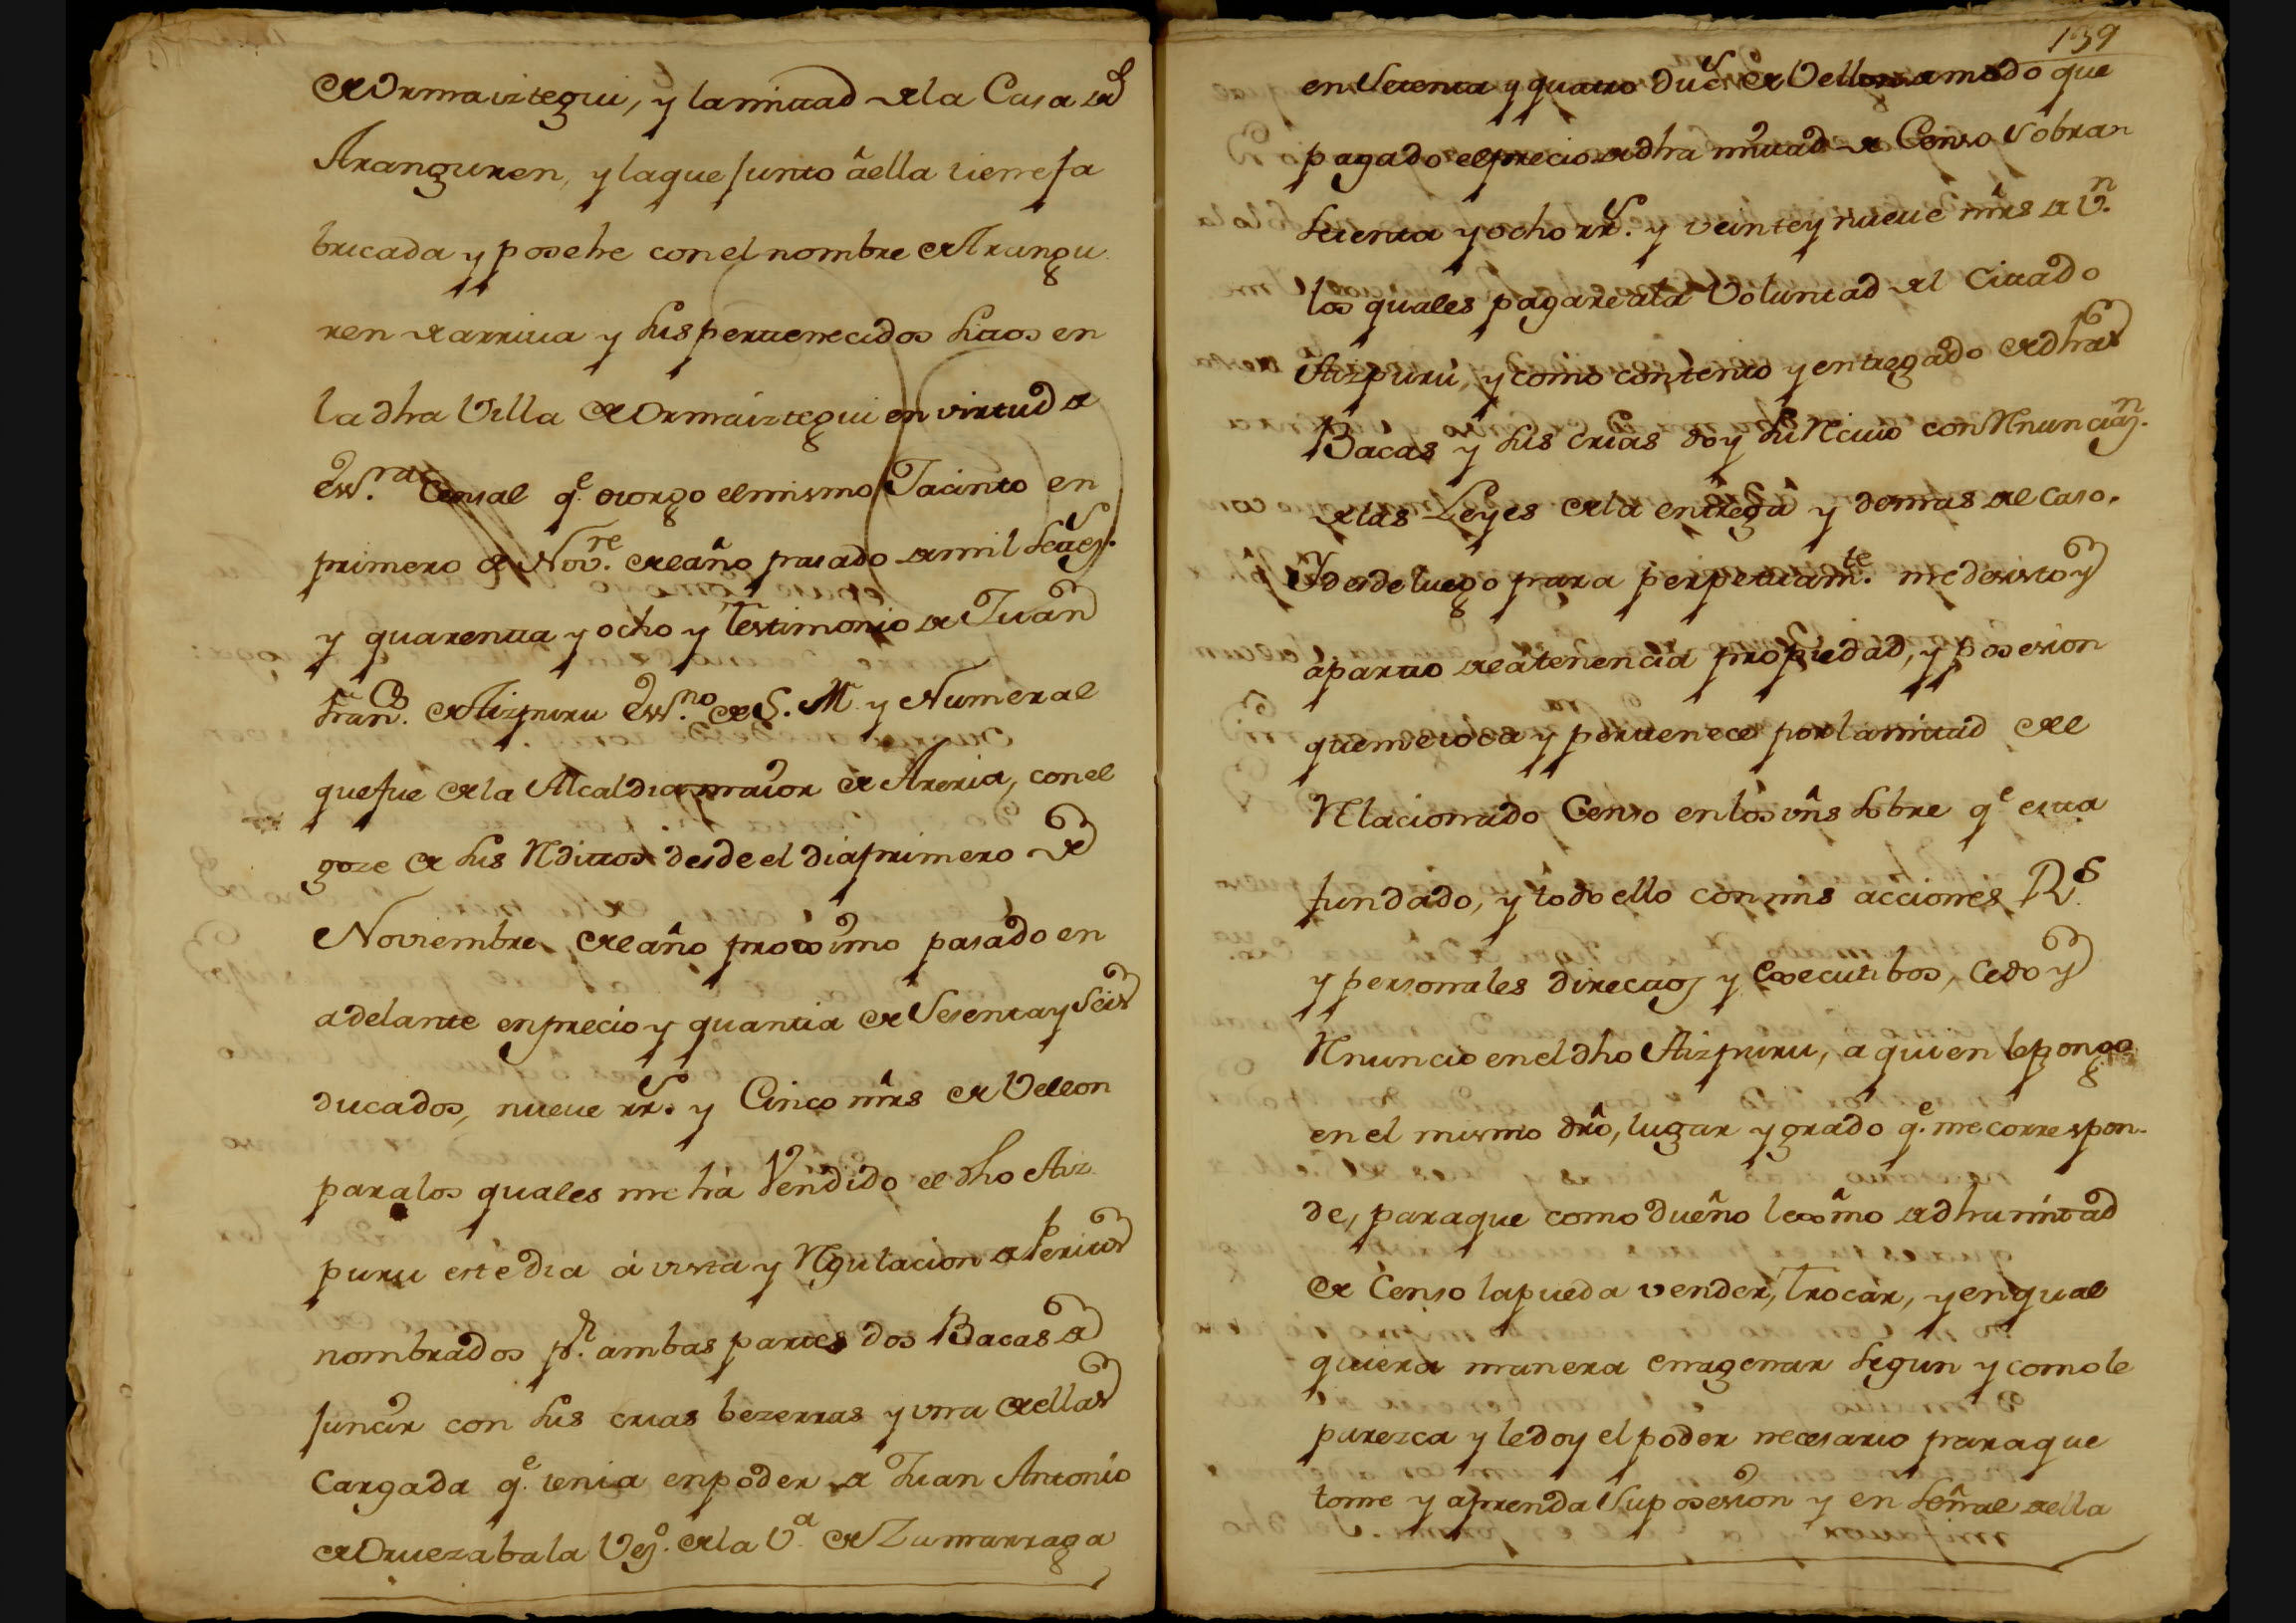 de Ormaiztegui, y la mitad de la Casa de
Aranguren, y la que Junto â ella tiene fa
bricada y posehe con el nombre de Arangu
ren de arriva y sus pertenecidos sitos en
la dha Villa de Ormaiztegui en virtud de
Ess.ra Censal q.e otorgo el mismo Jacinto en
primero de Nov.re del año pasado de mil setez.s
y quarenta y ocho y Testimonio de Juan
Fran.co de Aizpuru Ess.no de S. M. y Numeral
que fue de la Alcaldia maior de Areria, con el
goze de sus Rditos desde el dia primero de
Noviembre del año proximo pasado en
adelante en precio y quantia de Sesenta y seis
ducados, nueve rr.s y Cinco mrs de Vellon
para los quales me hà Vendido el dho Aiz
puru este dia à vista y Rgulacion de Peritos
nombrados p.r ambas partes dos Bacas de
Juncir con sus crias bezerras y una de ellas
Cargada q.e tenia en poder de Juan Antonio
de Oruezabala Vez.o de la V.a de Zumarraga
139
en Setenta y quatro Duc.s de Vellon a modo que
pagado el precio de dha mitad de Censo Sobran
setenta y ocho rr.s y veinte y nueve mrs de V.n
los quales pagare ala Voluntad del Citado
Aizpuru, y como contento y entregado de dhas
Bacas y sus crias doy su Rcivo con Rnunciaz.n
de las Leyes de la entrega y demas del caso.
Y desde luego para perpetuam.te me desisto y
aparto de la tenencia propiedad, y posesion
que me toca y pertenece por la mitad del
Rlacionado Censo en los vns sobre q.e esta
fundado, y todo ello con mis acciones R.s
y personales directos y Executibos, Cedo y
Rnuncio en el dho Aizpuru, a quien le pongo
en el mismo dro, lugar y grado q.e me correspon-
de, para que como dueño lexmo de dha mitad
de Censo la pueda vender, trocar, y en qual
quiera manera enagenar segun y como le
parezca y le doy el poder necesario para que
tome y aprenda Su posesion y en señal de ella